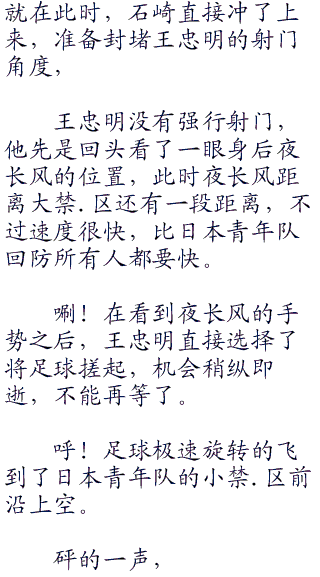 就在此时，石崎直接冲了上
来，准备封堵王忠明的射门
角度，
王忠明没有强行射门，
他先是回头看了一眼身后夜
长风的位置，此时夜长风距
离大禁.区还有一段距离，不
过速度很快，比日本青年队
回防所有人都要快。
唰！在看到夜长风的手
势之后，王忠明直接选择了
将足球搓起，机会稍纵即
逝，不能再等了。
呼！足球极速旋转的飞
到了日本青年队的小禁.区前
沿上空。
砰的一声，